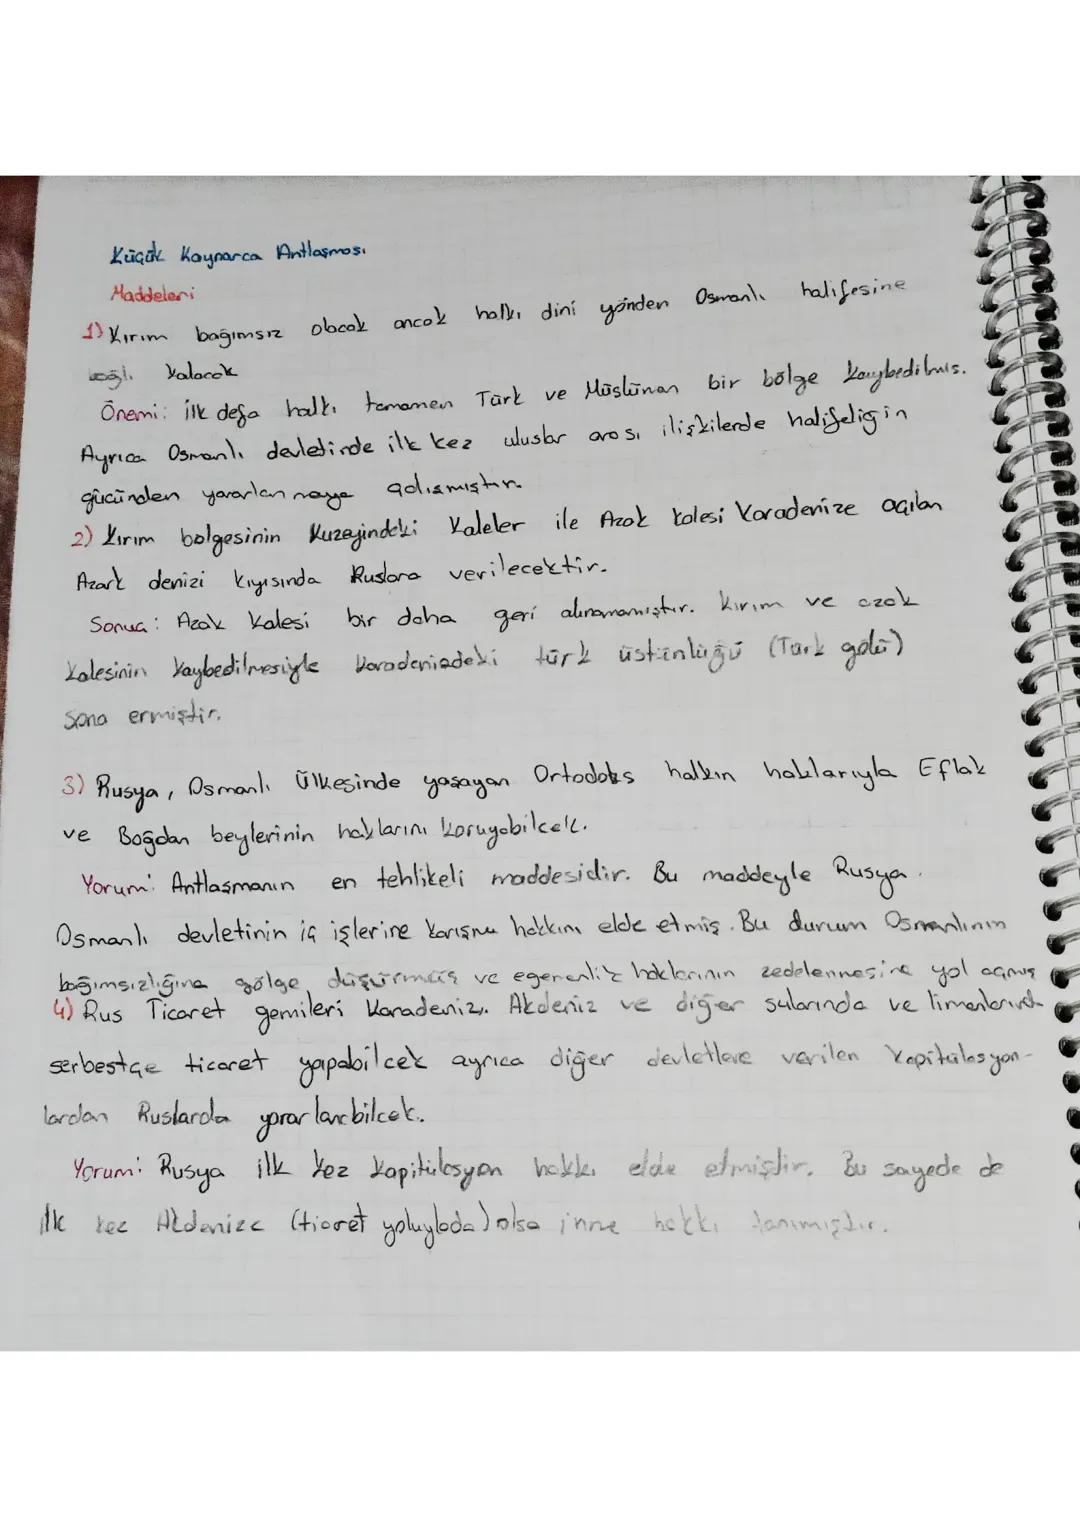 Küçük Kaynarca Antlaşması
Maddeleri
1) Kırım bağımsız olacak ancak halkı dini yönden Osmanlı halifesine
bağlı kalacak
Önemi: ilk defa halkı tamamen Türk ve Müslüman bir bölge kaybedilmiş.
Ayrıca Osmanlı devletinde ilk kez uluslar arası ilişkilerde halifeliğin
gücünden yararlanmaya çalışmıştır.
2) Kırım bölgesinin Kuzeyindeki Kaleler ile Azak kalesi Karadenize açılan
Azark denizi kıyısında Ruslara verilecektir.
Sonuç: Azak kalesi bir daha geri alınamamıştır. Kırım ve azak
kalesinin kaybedilmesiyle karadenizdeki türk üstünlüğü (Türk gölü)
sona ermiştir.
3) Rusya, Osmanlı Ülkesinde yaşayan Ortodoks halkın haklarıyla Eflak
ve Boğdan beylerinin haklarını koruyabilcek.
Yorum: Antlaşmanın en tehlikeli maddesidir. Bu maddeyle Rusya
Osmanlı devletinin iç işlerine karışma hakkını elde etmiş. Bu durum Osmanlının
bağımsızlığına gölge düşürmüş ve egemenlik haklarının zedelenmesine yol açmış
4) Rus Ticaret gemileri Karadeniz, Akdeniz ve diğer sularında ve limanlarında
serbestçe ticaret yapabilcek ayrıca diğer devletlere verilen kapitülasyon-
lardan Ruslarda yararlanabilcek.
Yorum: Rusya ilk kez kapitülasyon hakkı elde etmiştir. Bu sayede de
ilk kez Akdenize (ticaret yoluylada) olsa inme hakkı tanımıştır.